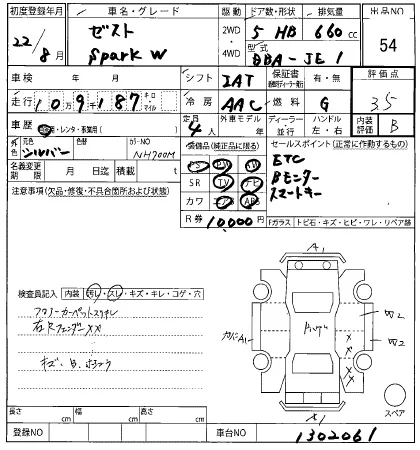 初度登録年月 車名・グレード 駆動 ドア数・形状 排気量 出品NO
22/8月 ゼスト Spark W 2WD・4WD 5 HB 660cc 54
型式 DBA-JE1
車検 年 月 シフト IAT 保証書 有・無 評価点 3.5
走行 10万9千187 キロ マイル 冷房 AAC 燃料 G 内装 B
車歴 レンタ・事業用( ) 定員 4人 外車モデル 年 ディーラー 並行 ハンドル 左・右
外色 元色 シルバー 色替 カラーNO NH700M
装備品(純正品に限る) セールスポイント(正常に作動するもの)
名義変更期限 月 日迄 積載 t
PS PW AW ETC
SR TV ナビ Bモニター
カワ エアB ABS スマートキー
注意事項(欠品・修復・不具合箇所および状態)
R券 10,000円
Fガラス トビ石・キズ・ヒビ・ワレ・リペア跡
A1
検査員記入 内装 汚レ・スレ・キズ・キレ・コゲ・穴
フロアーカーペットスリキレ
右Rフェンダー XX
キズ・B・
A1 W2
W2
X
X X
X1
スペア
長さ cm 幅 cm 高さ cm
登録NO 車台NO 1302061